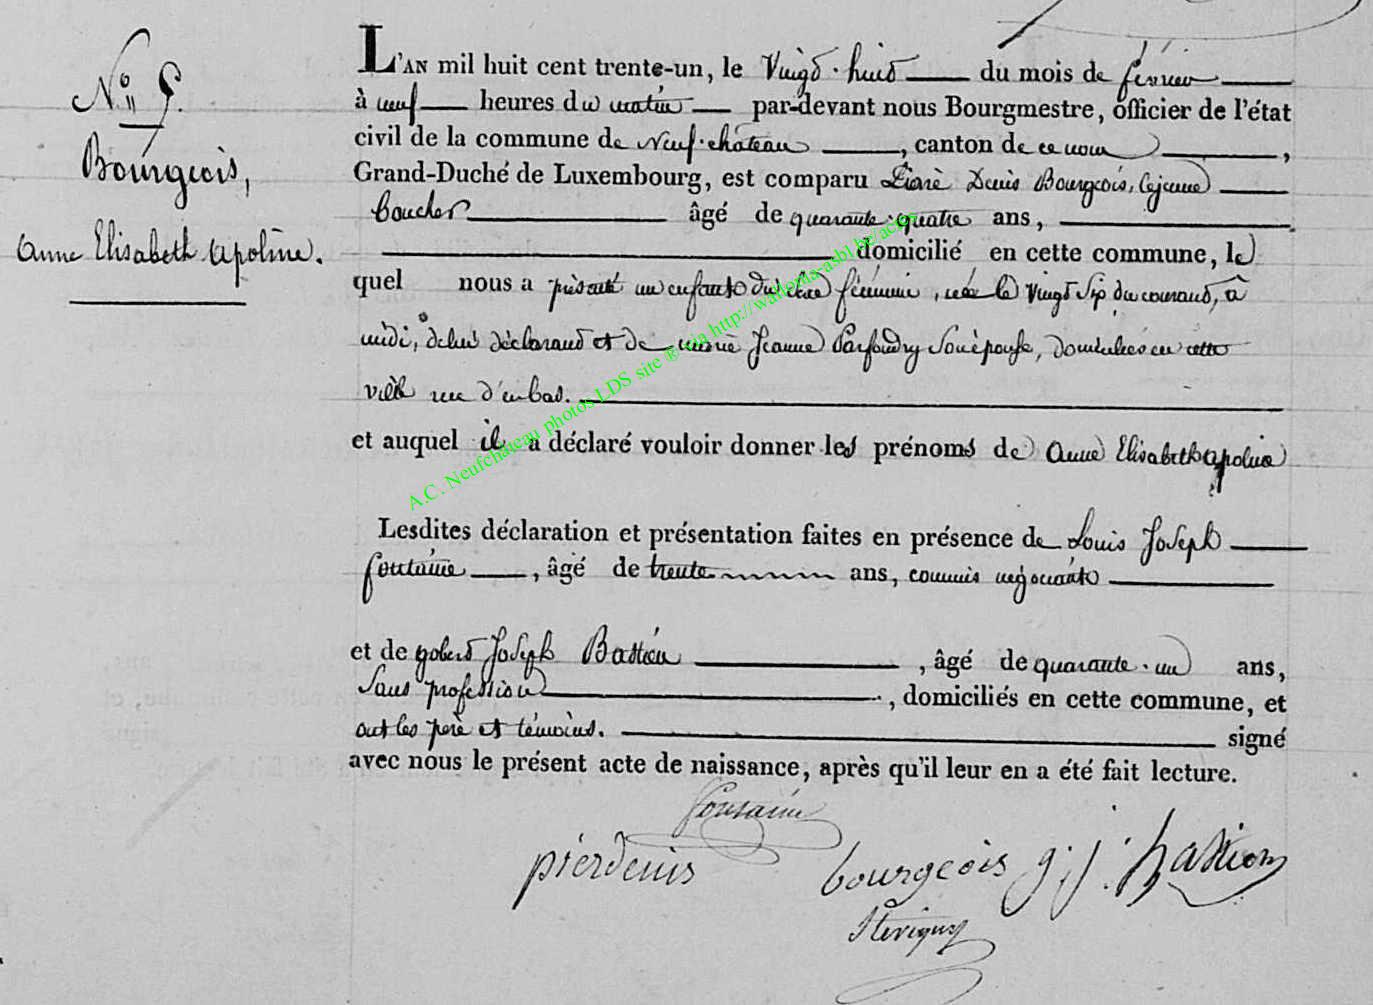 N° 9.
Bourgeois,
Anne Elisabeth Apoline.
L'AN mil huit cent trente-un, le Vingt-huit du mois de février
à neuf heures du matin par-devant nous Bourgmestre, officier de l'état
civil de la commune de Neuf-château, canton de ce nom,
Grand-Duché de Luxembourg, est comparu Pierre Denis Bourgeois, le jeune
boucher âgé de quarante-quatre ans,
domicilié en cette commune, le
quel nous a présenté un enfant du sexe féminin, née le Vingt Sept du courant, à
midi, de lui déclarant et de Marie Jeanne Parfondry Son épouse, domiciliés en cette
ville rue d'en bas.
et auquel il a déclaré vouloir donner les prénoms de Anne Elisabeth apoline
Lesdites déclaration et présentation faites en présence de Louis Joseph
fontaine, âgé de trente ans, commis négociant
et de gobert Joseph Bastien, âgé de quarante-un ans,
Sans profession, domiciliés en cette commune, et
ont les père et témoins. signé
avec nous le présent acte de naissance, après qu'il leur en a été fait lecture.
fontaine
pierdenis bourgeois g. j. bastien
A.C. Neufchateau photos LDS site ® via http://wallonia-asbl.be/actes